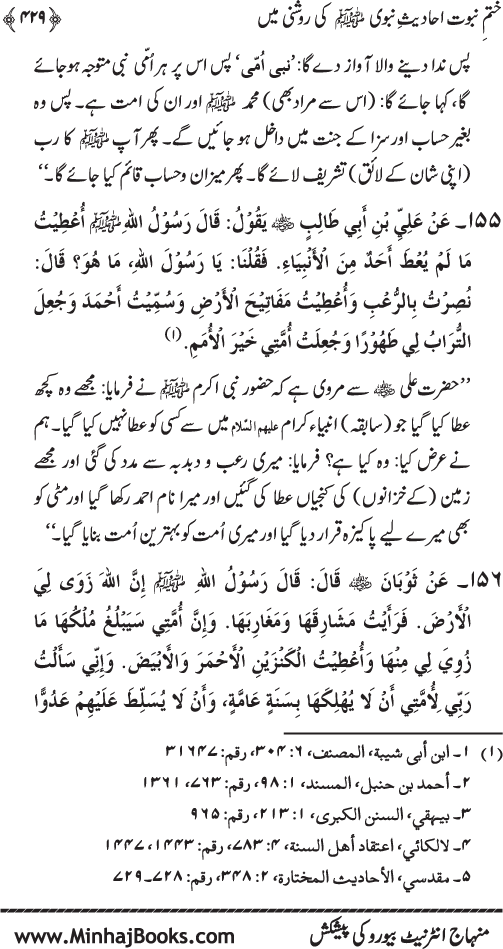 ختمِ نبوت احادیثِ نبوی ﷺ کی روشنی میں ﴿۴۲۹﴾
پس ندا دینے والا آواز دے گا: ’نبی اُمّی‘ پس اس پر ہر اُمّی نبی متوجہ ہوجائے
گا، کہا جائے گا: (اس سے مراد بھی) محمد ﷺ اور ان کی امت ہے۔ پس وہ
بغیر حساب اور سزا کے جنت میں داخل ہو جائیں گے۔ پھر آپ ﷺ کا رب
(اپنی شان کے لائق) تشریف لائے گا۔ پھر میزان وحساب قائم کیا جائے گا۔‘‘
۱۵۵۔ عَنْ عَلِيِّ بْنِ أَبِي طَالِبٍ ﷺ يَقُوْلُ: قَالَ رَسُوْلُ اللهِ ﷺ أُعْطِيْتُ
مَا لَمْ يُعْطَ أَحَدٌ مِنَ الْأَنْبِيَاءِ. فَقُلْنَا: يَا رَسُوْلَ اللهِ، مَا هُوَ؟ قَالَ:
نُصِرْتُ بِالرُّعْبِ وَأُعْطِيْتُ مَفَاتِيْحَ الْأَرْضِ وَسُمِّيْتُ أَحْمَدَ وَجُعِلَ
التُّرَابُ لِي طَهُوْرًا وَجُعِلَتْ أُمَّتِي خَيْرَ الْأُمَمِ. (۱)
’’حضرت علی سے مروی ہے کہ حضور نبی اکرم ﷺ نے فرمایا: مجھے وہ کچھ
عطا کیا گیا جو (سابقہ) انبیاء کرام علیہم السّلام میں سے کسی کو عطا نہیں کیا گیا۔ ہم
نے عرض کیا: وہ کیا ہے؟ فرمایا: میری رعب و دبدبہ سے مدد کی گئی اور مجھے
زمین (کے خزانوں) کی کنجیاں عطا کی گئیں اور میرا نام احمد رکھا گیا اور مٹی کو
بھی میرے لیے پاکیزہ قرار دیا گیا اور میری اُمت کو بہترین اُمت بنایا گیا۔‘‘
۱۵۶۔ عَنْ ثَوْبَانَ قَالَ: قَالَ رَسُوْلُ اللهِ ﷺ إِنَّ اللهَ زَوَى لِي
الْأَرْضَ. فَرَأَيْتُ مَشَارِقَهَا وَمَغَارِبَهَا. وَإِنَّ أُمَّتِي سَيَبْلُغُ مُلْكُهَا مَا
زُوِيَ لِي مِنْهَا وَأُعْطِيْتُ الْكَنْزَيْنِ الْأَحْمَرَ وَالْأَبْيَضَ. وَإِنِّي سَأَلْتُ
رَبِّي لِأُمَّتِي أَنْ لَا يُهْلِكَهَا بِسَنَةٍ عَامَّةٍ، وَأَنْ لَا يُسَلِّطَ عَلَيْهِمْ عَدُوًّا
(۱) ۱۔ ابن أبی شيبة، المصنف، ۶: ۳۰۴، رقم: ۳۱۶۴۷
۲۔ أحمد بن حنبل، المسند، ۱: ۹۸، رقم: ۷۶۳، ۱۳۶۱
۳۔ بيهقي، السنن الكبری، ۱: ۲۱۳، رقم: ۹۶۵
۴۔ لالكائي، اعتقاد أهل السنة، ۴: ۷۸۳، رقم: ۱۴۴۳، ۱۴۴۷
۵۔ مقدسي، الأحاديث المختارة، ۲: ۳۴۸، رقم: ۷۲۸۔۷۲۹
منہاج انٹرنیٹ بیورو کی پیشکش www.MinhajBooks.com